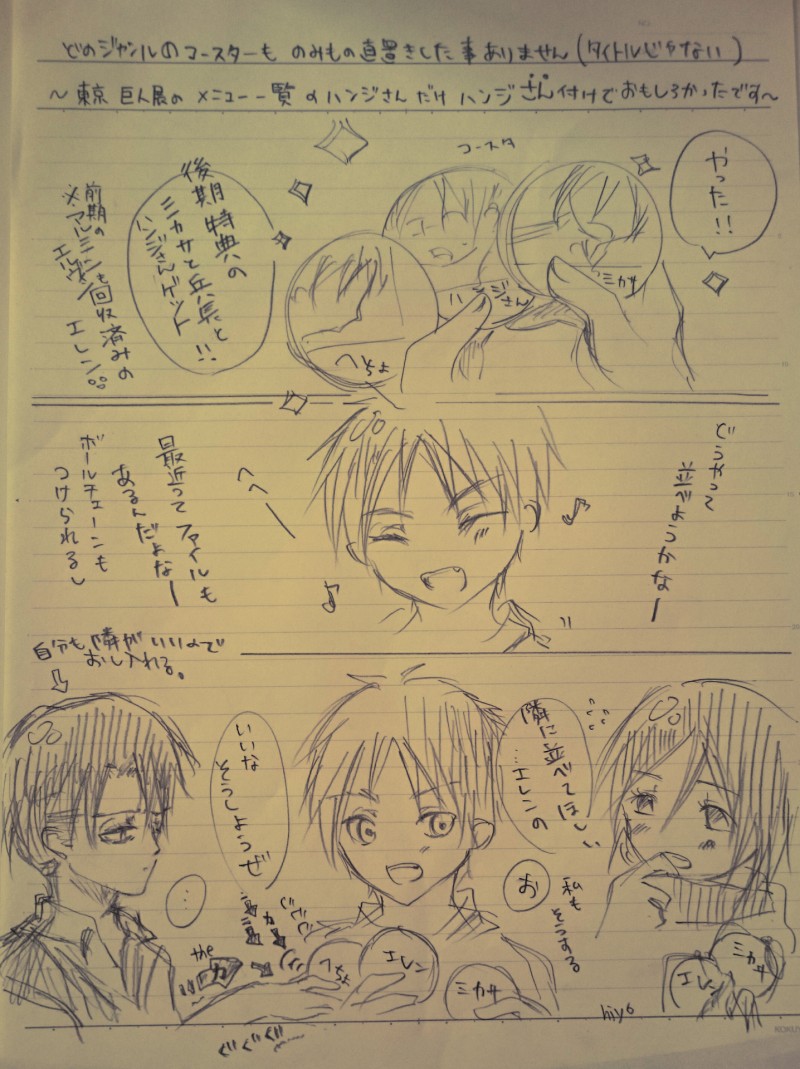 どのジャンルのコースターも のみもの直置きした事ありません(タイトルじゃない)
〜東京 巨人展の メニュー一覧の ハンジさんだけ ハンジさん付けでおもしろかったです〜
やった!!
コースタ
ミカサ
ハンジさん
へいちょ
後期特典の
ミカサと兵長と
ハンジさんゲット!!
前期の
回収済みの
エレン
どうやって
並べようかなー
へへー
最近ってファイルも
あるんだよなー
ボールチェーンも
つけられるし
隣に並べてほしい
…エレンの
お
私も
そうする
ミカサ
エレン
いいな
そうしようぜ
エレン
ミカサ
へいちょ
自分も隣がいいので
おし入れる。
…
the
ぐぐぐ
hiy6